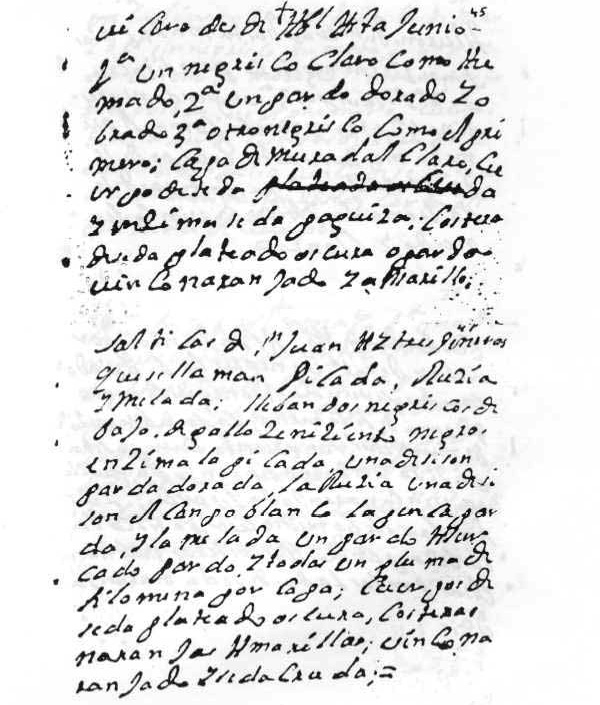 1ª un negrisco Claro Como
mado, 2ª un pardo dorado Zo
brado 3ª otro negrisco, Como el pri
mero; Capa de muradal Claro, Cu
erpo de seda da
y enzima seda pagiza; Costera
de seda plateado oscura o parda
vinco naranjado y amarillo;
Salticas de Sn Juan ay tres generos
que se llaman Picada, Ruzia
y melada; lleban dos negriscos de
bajo, de gallo zeniziento negro,
enzima la picada, una de sison
parda dorada, la Ruzia una de si
son el Canpo blanco la pinta par
da, y la melada un pardo
cado pardo, y todas un pluma de
por Capa; Cuerpos de
seda plateado oscura, Costeras
naranjas Amarillas; vinco na
ranjado y seda Cruda;=